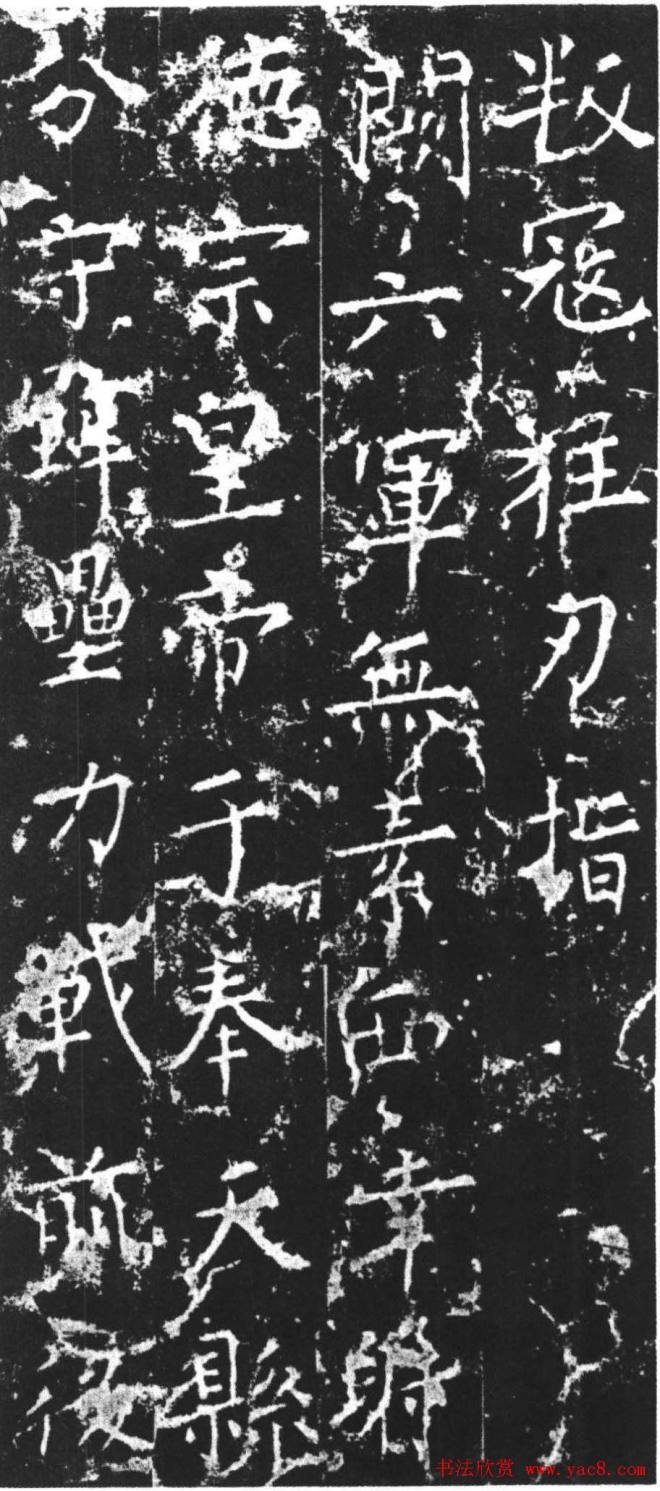 叛寇狂刃指
闕六軍無素西幸
德宗皇帝于奉天縣
分守壘力戰前後
书法欣赏 www.yac8.com